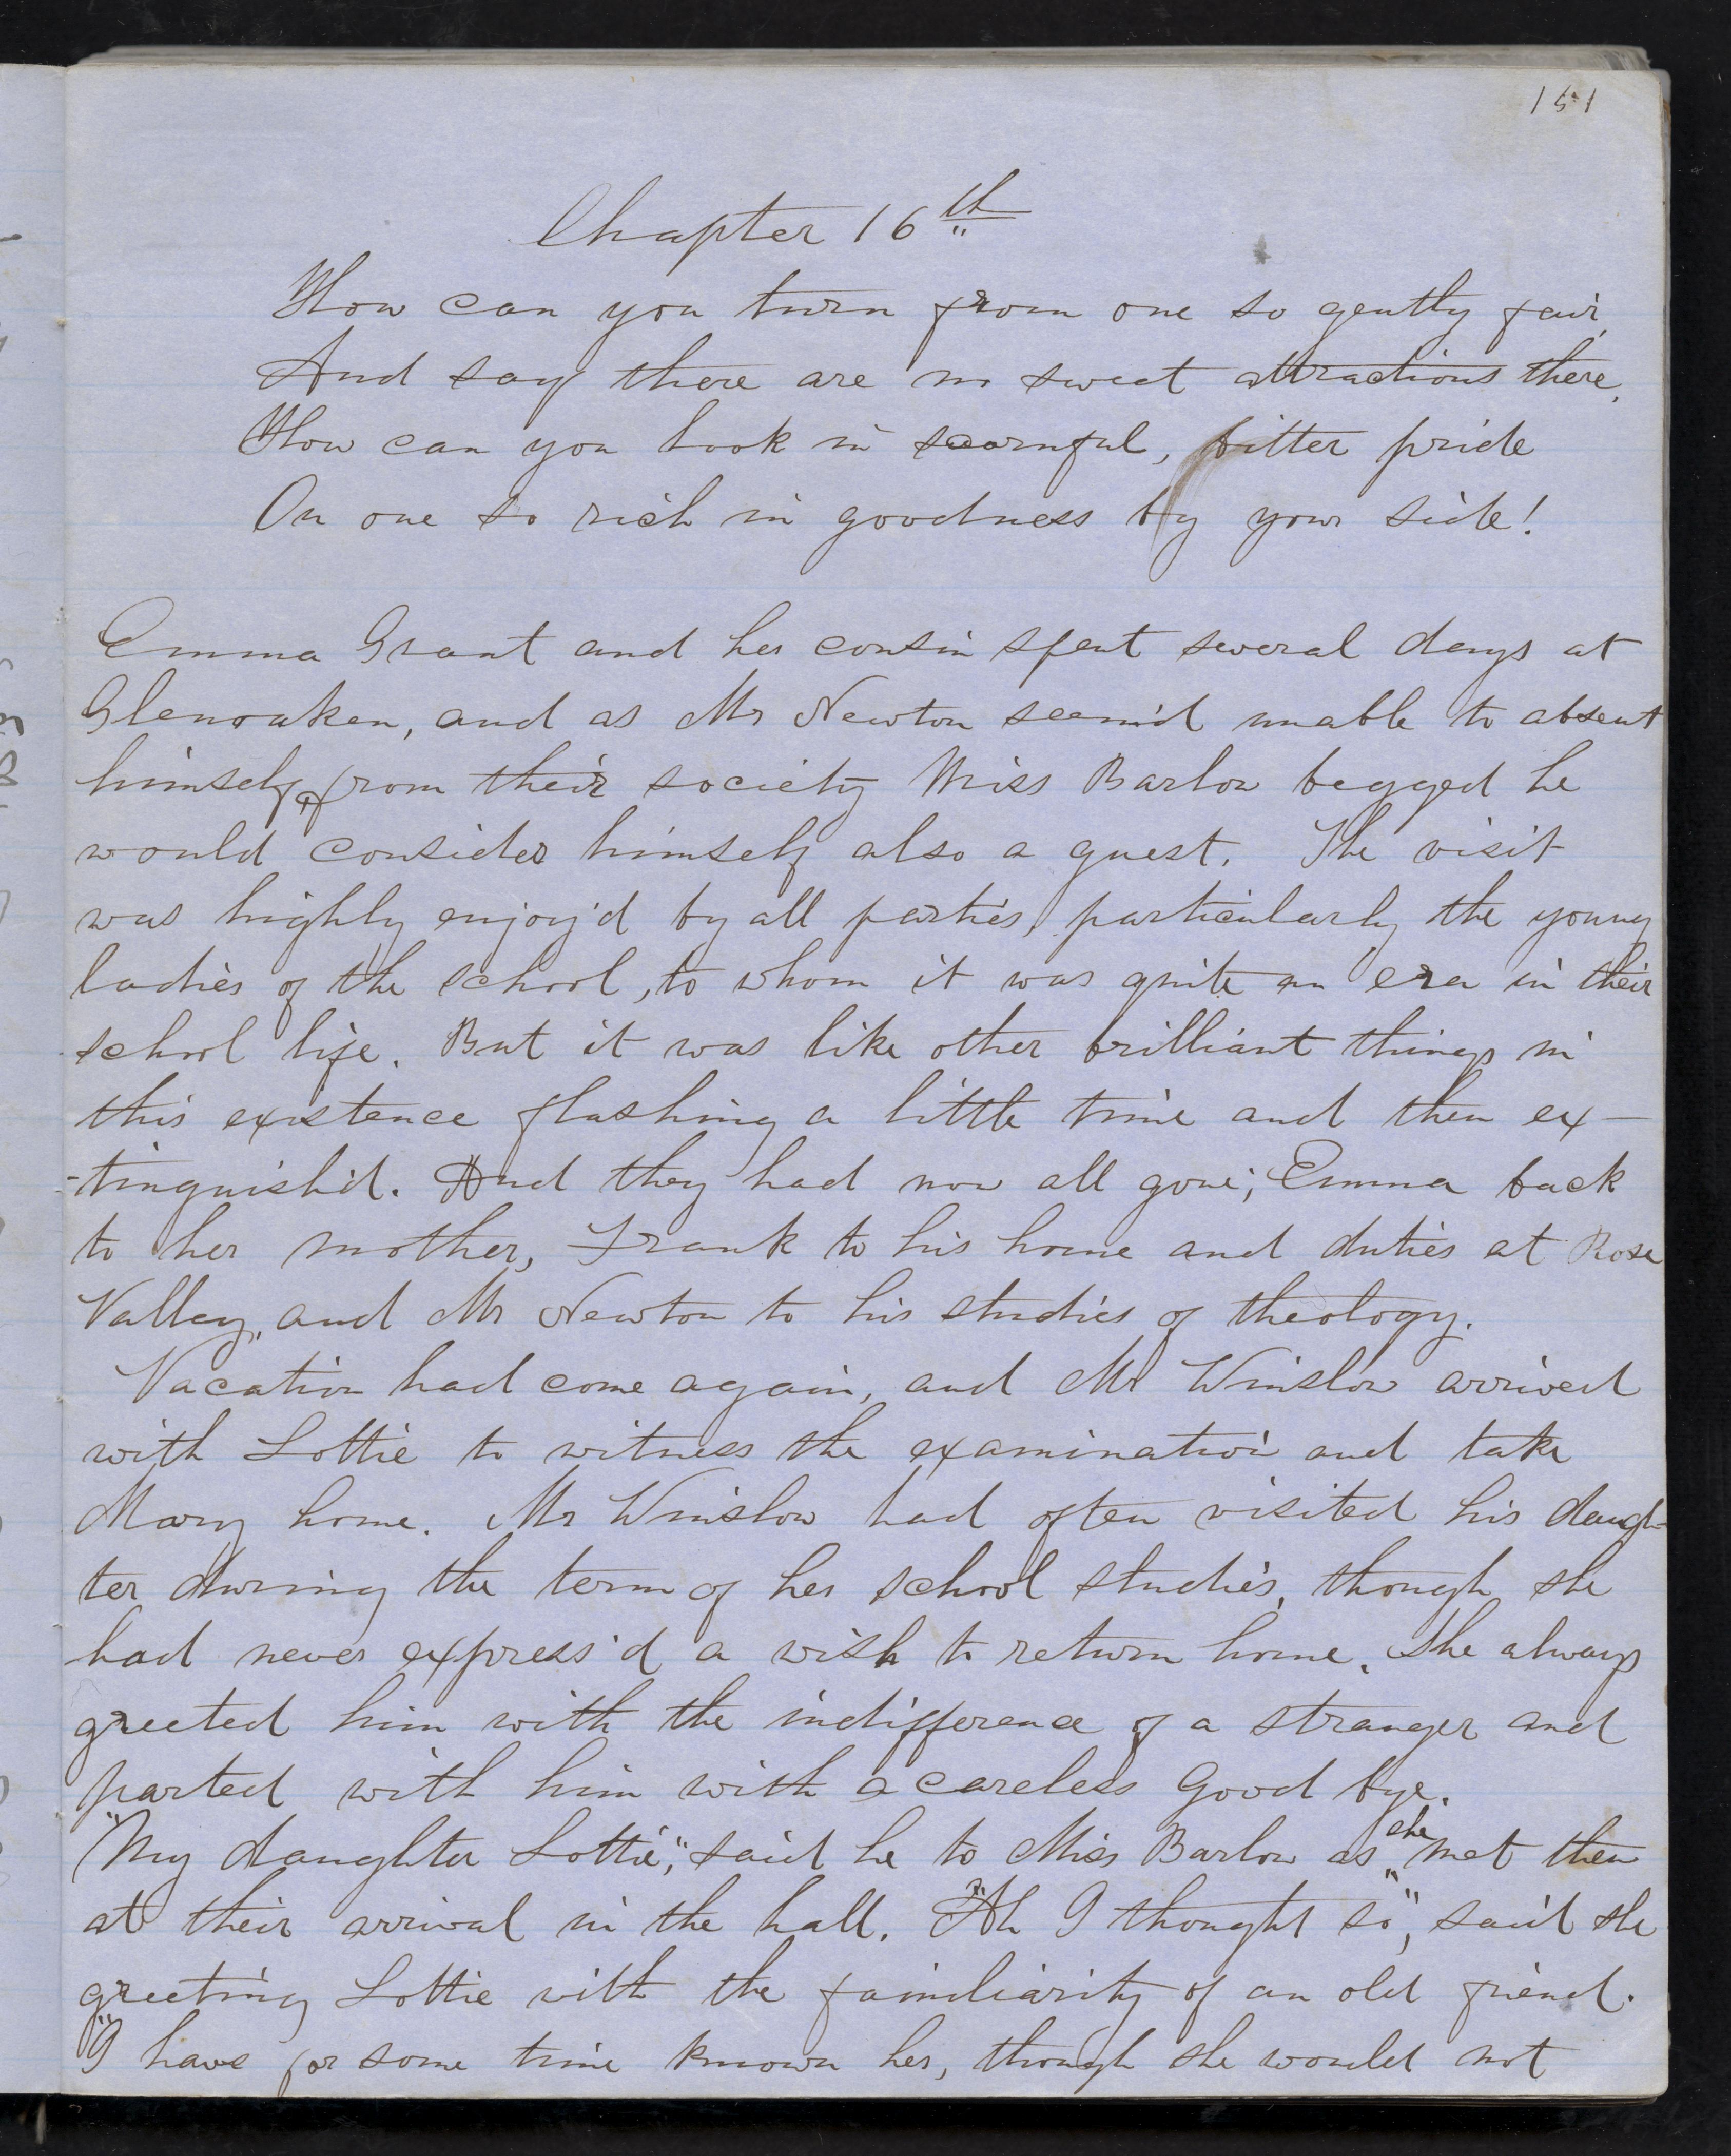 151
Chapter 16th
How can you turn from one so gently fair,
And say there are no sweet attractions there,
How can you look in scornful, bitter pride
On one so rich in goodness by your side!
Emma Grant and her cousin spent several days at
Glenoaken, and as Mr Newton seem'd unable to absent
himself from their society Miss Barlow begged he
would consider himself also a guest. The visit
was highly enjoy'd by all parties, particularly the young
ladies of the school, to whom it was quite an era in their
school life. But it was like other brilliant things in
this existence flashing a little time and then ex-
-tinguish'd. And they had now all gone; Emma back
to her mother, Frank to his home and duties at Rose
Valley, and Mr Newton to his studies of theology.
Vacation had come again, and Mr Winslow arrived
with Lottie to witness the examination and take
Mary home. Mr Winslow had often visited his daugh-
ter during the term of her school studies, though she
had never express'd a wish to return home. She always
greeted him with the indifference of a stranger and
parted with him with a careless Good bye.
"My daughter Lottie," said he to Miss Barlow as she met them
at their arrival in the hall. "Ah I thought so", said she
greeting Lottie with the familiarity of an old friend.
"I have for some time known her, though she would not